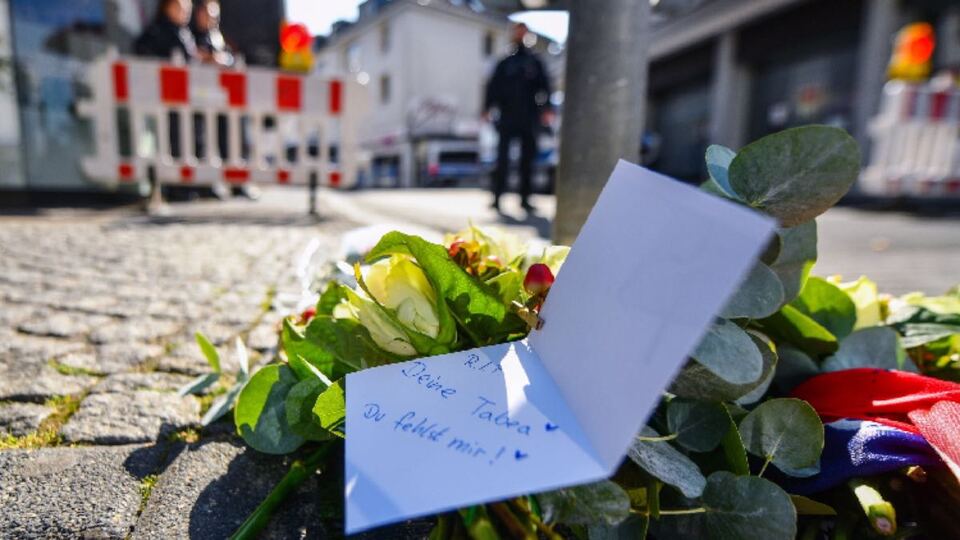 R.I.P
Deine Tabea ♥
Du fehlst mir! ♥